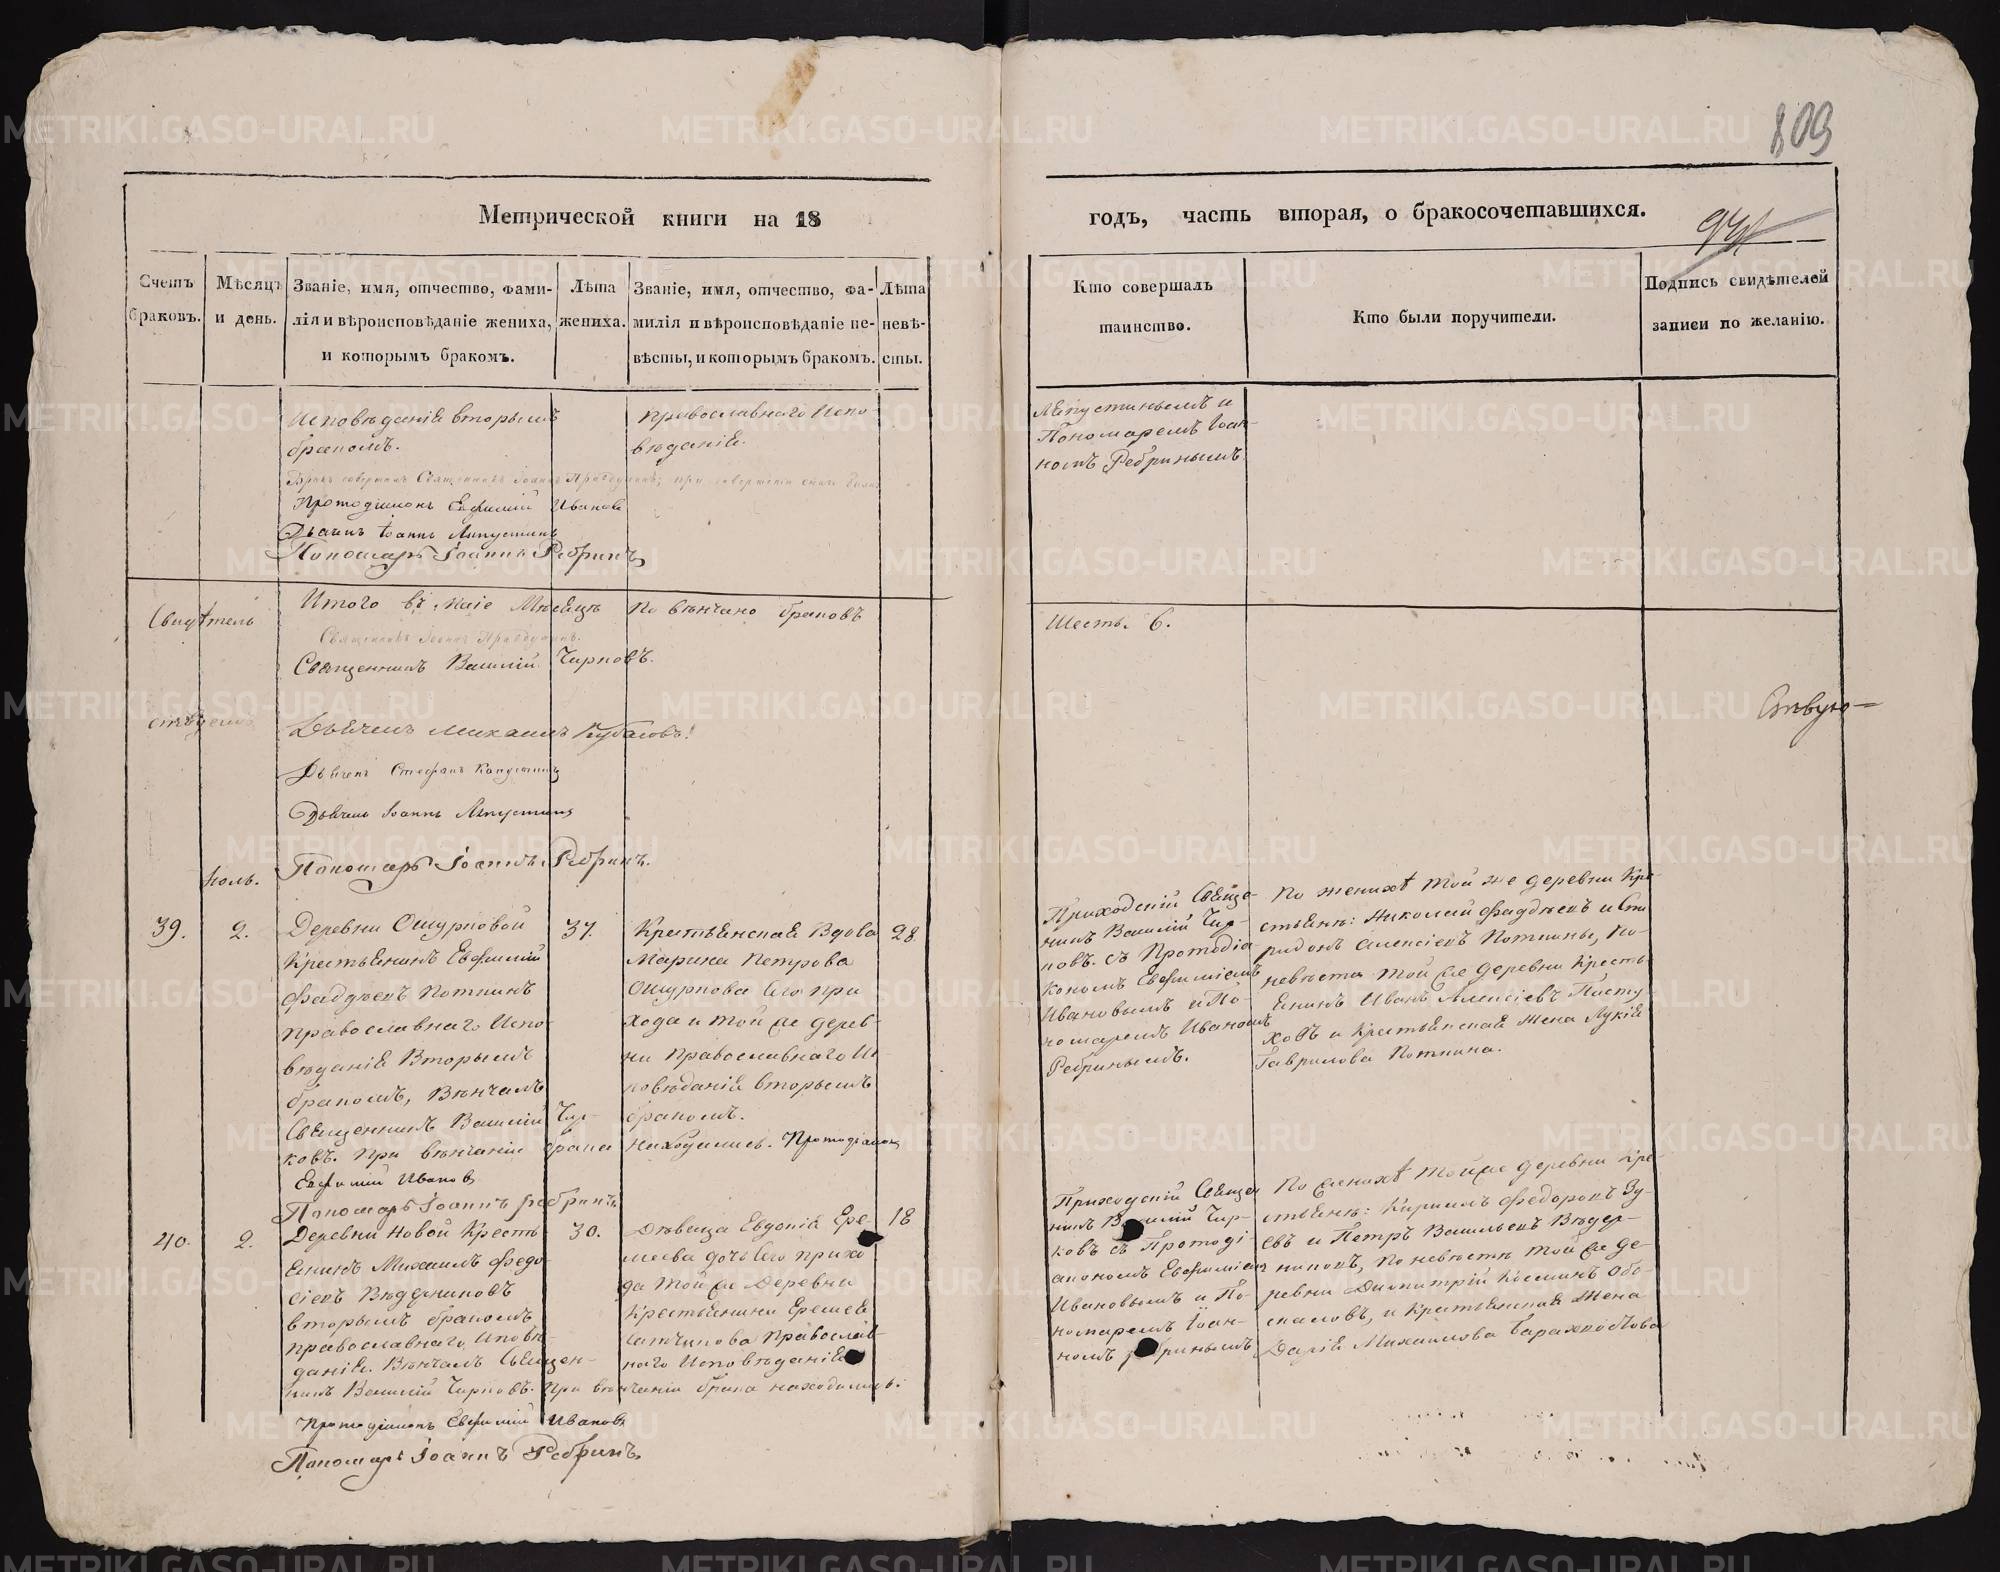 809
Метрической книги на 18
годъ, часть вторая, о бракосочетавшихся.
94
Счетъ браковъ.
Мѣсяцъ и день.
Званіе, имя, отчество, фами-
лія и вѣроисповѣданіе жениха,
и которымъ бракомъ.
Лѣта
жениха.
Званіе, имя, отчество, фа-
милія и вѣроисповѣданіе не-
вѣсты, и которымъ бракомъ.
Лѣта
невѣ-
сты.
Кто совершалъ
таинство.
Кто были поручители.
Подпись свидѣтелей
записи по желанію.
Исповѣданія вторымъ
бракомъ.
православнаго Испо-
вѣданія.
Пономаремъ Іоан-
номъ Ребринымъ
Протодіаконъ Евфимій Ивановъ
Дьячекъ Іоаннъ
Пономарь Іоаннъ Ребринъ
Итого въ Маіе Месяце по вѣнчано браковъ
Шесть. 6.
Свидѣтель
Священникъ Василий Чирковъ.
Дьячекъ Михаилъ Кубасовъ
Дьячекъ Стефанъ Капустинъ
Дьячекъ Іоаннъ
Пономарь Іоаннъ Ребринъ.
Іюль.
39.
2.
Деревни Ошурковой
Крестьянинъ Евфимій
Фаддѣевъ Поткинъ
православнаго Испо-
вѣданія Вторымъ
бракомъ, Вѣнчалъ
Священникъ Василій Чир-
ковъ. При вѣнчаніи брака находились. Протодіаконъ
Евфимій Ивановъ
Пономарь Іоаннъ Ребринъ
37.
Крестьянская Вдова
Марина Петрова
Ошуркова Его при
хода и той же дерев-
ни православнаго И
повѣданія вторымъ
бракомъ.
28
Приходскій Свяще-
никъ Василій Чир-
ковъ. съ Протодіа-
кономъ Евфиміемъ
Ивановымъ и По-
номаремъ Иваномъ
Ребринымъ.
По женихѣ той же деревни Кре-
стьяне: Николай Фаддѣевъ и Спи
ридонъ Алексіевъ Поткины, По
невѣсте той же деревни Кресть-
янинъ Иванъ Алексіевъ Пасту
ховъ и Крестьянская Жена Лукія
Гаврилова Поткина.
40.
2.
Деревни Новой Кресть
янинъ Михаилъ Федо
сіевъ Ведерниковъ
вторымъ бракомъ
православнаго Исповѣ
данія. Вѣнчалъ Священ-
никъ Василій Чирковъ. При вѣнчаніи брака находились:
Протодіаконъ Евфимій Ивановъ
Пономарь Іоаннъ Ребринъ
30.
Дѣвица Евдокія Ере-
меева дочь Его прихо
да той же Деревни
Крестьянина Еремея
православ-
наго Исповѣданія
18
Приходскій Священ
никъ Василій Чир-
ковъ съ Протоді
акономъ Евфиміемъ
Ивановымъ и По
номаремъ Іоан-
номъ Ребринымъ
По женихѣ той же деревни Кре-
стьяне: Кирилъ Федоровъ
и Петръ Васильевъ Ведер-
никовъ, по невѣсте той же де-
ревни Димитрій Козминъ
и Крестьянская Жена
Дарія Михаилова